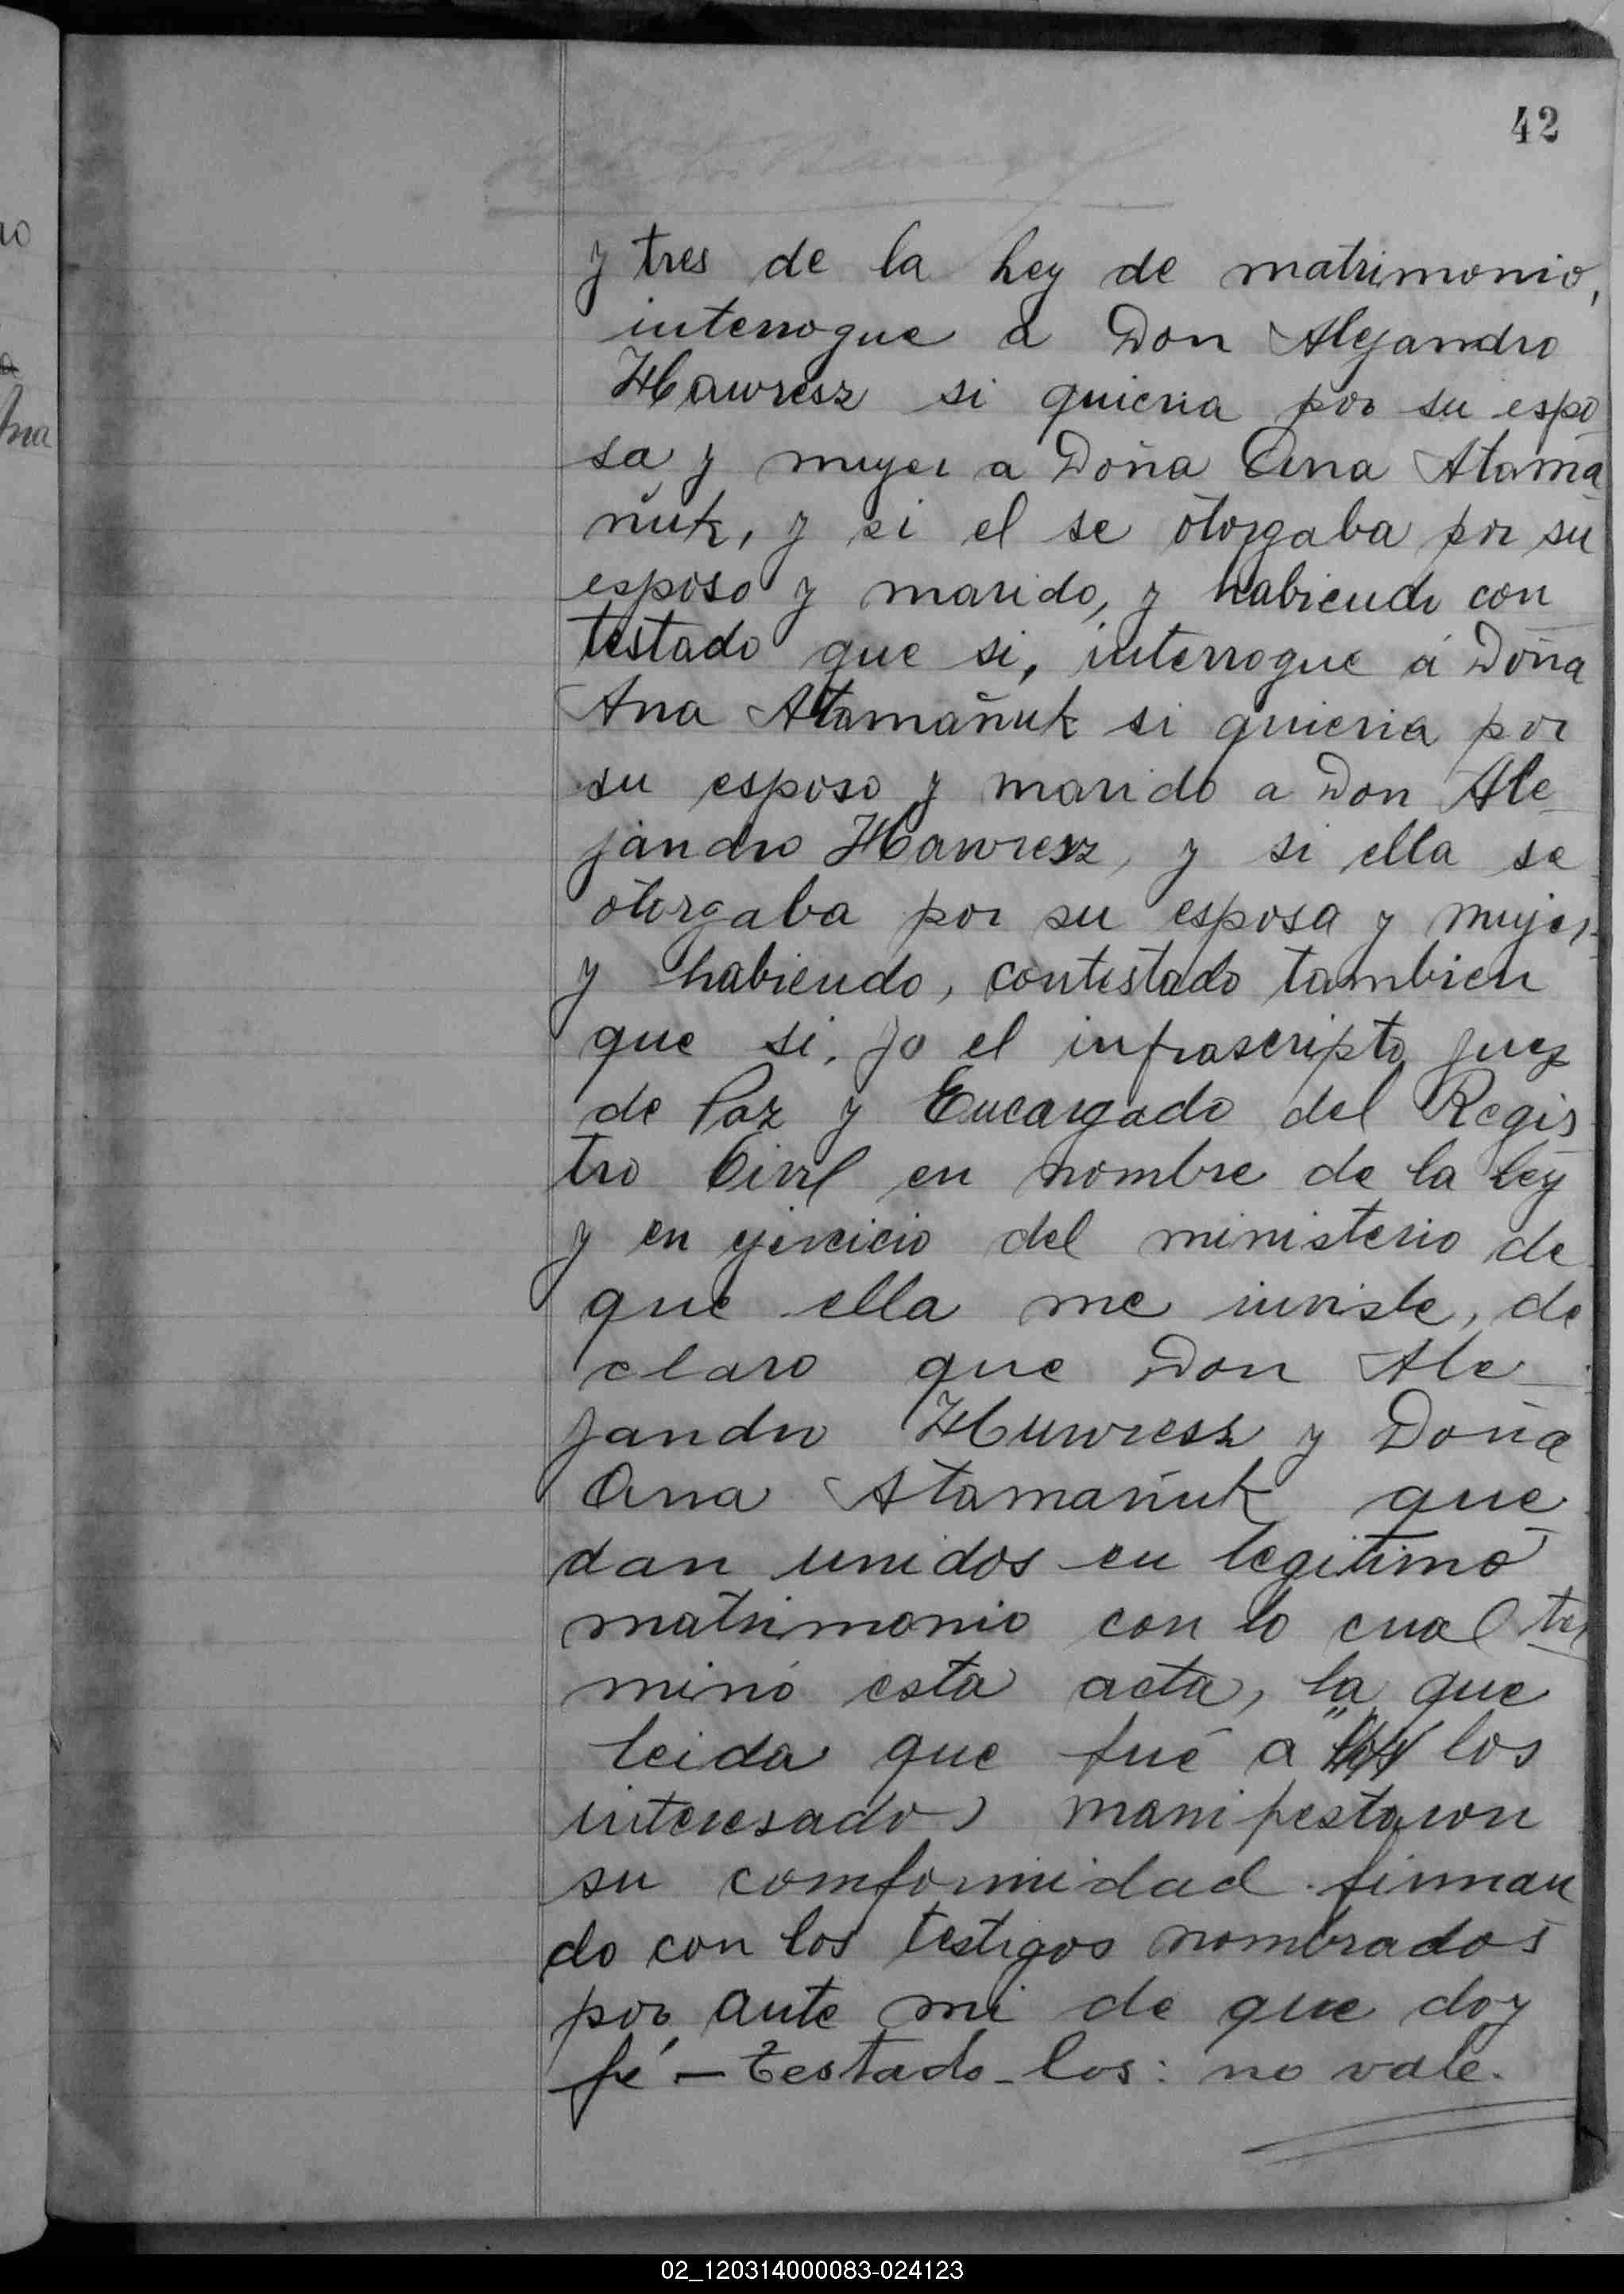 42
y tres de la Ley de matrimonio,
interrogue a Don Alejandro
Hawresz si quieria por su espo
sa y muger a Doña Ana Atama
ñuk, y si el se otorgaba por su
esposo y marido, y habiendo con
testado que si, interrogue á Doña
Ana Atamañuk si quieria por
su esposo y marido a Don Ale
jandro Hawresz, y si ella se
otorgaba por su esposa y mujer
y habiendo, contestado tambien
que si. yo el infrascripto juez
de Paz y Encargado del Regis
tro Civil en nombre de la Ley
y en ejercicio del ministerio de
que ella me inviste, de
claro que Don Ale
jandro Huwresz y Doña
Ana Atamañuk que
dan unidos en legitimo
matrimonio con lo cual ter
minó esta acta, la que
leida que fué a los los
interesados manifestaron
su comformidad firman
do con los testigos nombrados
por ante mi de que doy
fé – Testado - los: no vale.
no
a
Ana
02_120314000083-024123